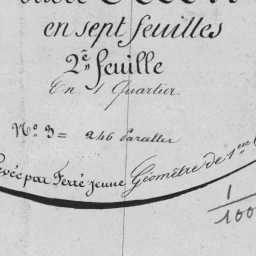 en sept feuilles
2e feuille
En 1 Quartier
No. 3 = 246 Parcelles
Levée par Ferré jeune Géomètre de 1ere
1/100